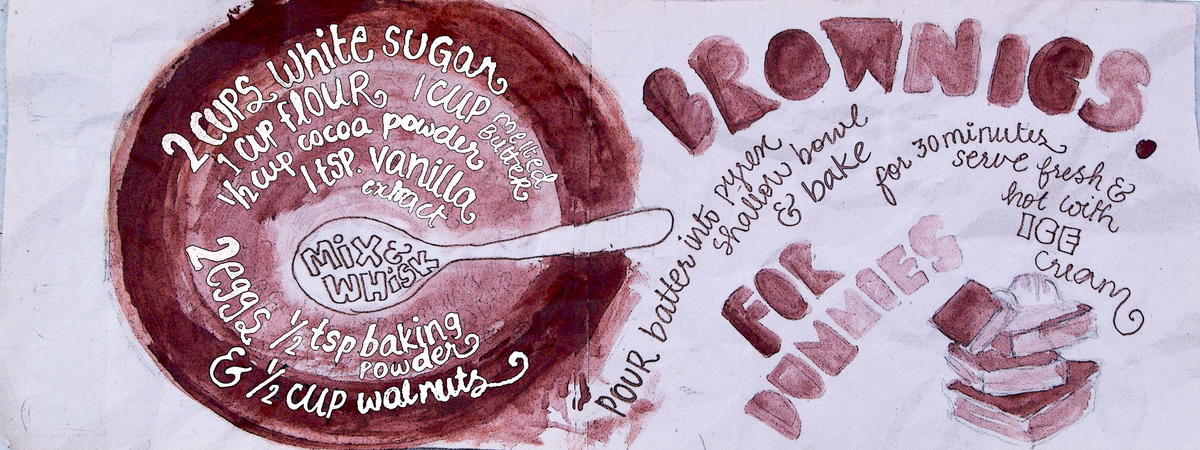 2 CUPS White SUGAR
1 CUP flOUR
1 CUP melted Butter
1/2 cup cocoa powder
1 tsp. vanilla extract
Mix & WHisk
2 eggs
1/2 tsp baking powder
& 1/2 CUP walnuts
BROWNIES.
FOR DUMMIES
POUR batter into pyrex
shallow bowl
& bake
for 30 minutes
serve fresh &
hot with
ICE
cream